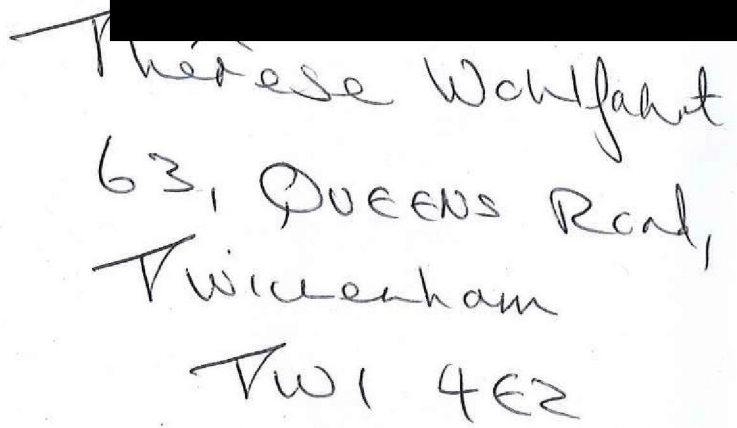 Thérèse Wohlfahrt
63, QUEENS Road,
Twickenham
TW1 4EZ